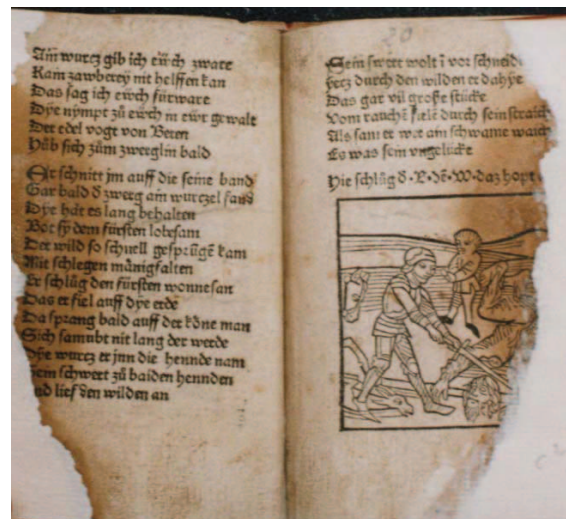 Ain wurcz gib ich eüch zware
Kain zawberey nit helffen kan
Das sag ich eüch fürware
Dye nympt zů eüch in ewr gewalt
Der edel vogt von Beren
Hůb sich zům zwerglin bald
Er schnitt jm auff die seine band
Gar bald d̕ zwerg ain wurczel fand
Dye hat es lang behalten
Bot sy dem fürsten lobesam
Der wild so schnell gesprūgē kam
Mit schlegen mānigfalten
Er schlůg den fürsten wonnesan
Das er fiel auff dye erde
Da sprang bald auff der kōne man
Sich samubt nit lang der werde
Dye wurcz er jnn die hennde nam
Sein schwert zů baiden hennden
nd lief den wilden an
20
Sein swert wolt ī vor schneidē
yecz durch den wilden er dahye
Das gar vil große stücke
Vom rauchē fäle durch sein straich
Als sam er wer ain schwame waich
Es was sein vngelücke
Hie schlůg d̕·B·dē·W·daz hopt